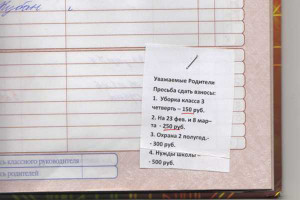 Кубан
Уважаемые Родители
Просьба сдать взносы:
1. Уборка класса 3
четверть – 150 руб.
2. На 23 фев. и 8 мар-
та - 250 руб.
3. Охрана 2 полугод.-
- 300 руб.
4. Нужды школы –
- 500 руб.
классного руководителя
родителей